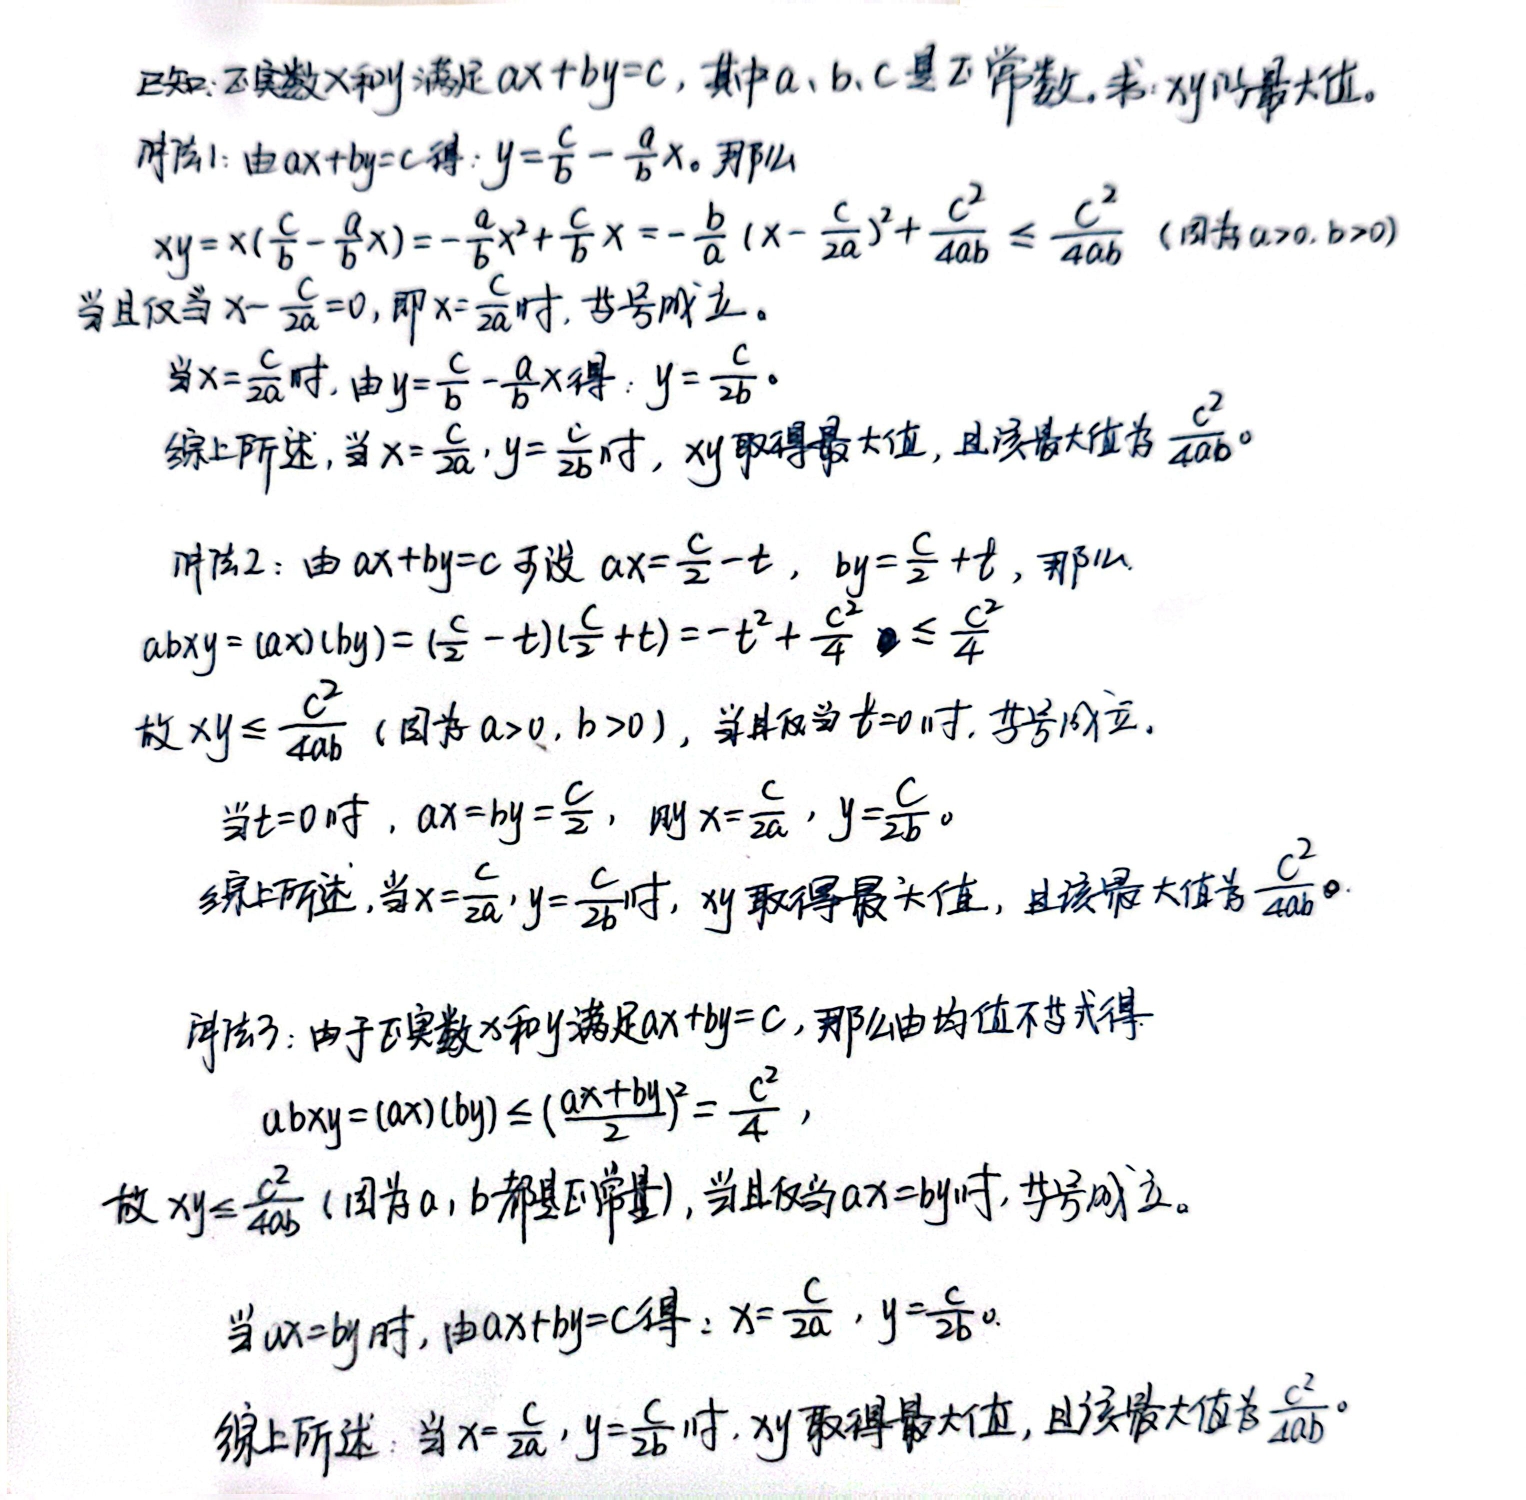 已知:正实数x和y满足ax+by=c,其中a、b、c是正常数。求:xy的最大值。
解法1:由ax+by=c得:y=\frac{c}{b}-\frac{a}{b}x。那么
xy=x(\frac{c}{b}-\frac{a}{b}x)=-\frac{a}{b}x²+\frac{c}{b}x=-\frac{b}{a}(x-\frac{c}{2a})²+\frac{c²}{4ab}≤\frac{c²}{4ab}(因为a>0,b>0)
当且仅当x-\frac{c}{2a}=0,即x=\frac{c}{2a}时,等号成立。
当x=\frac{c}{2a}时,由y=\frac{c}{b}-\frac{a}{b}x得:y=\frac{c}{2b}。
综上所述,当x=\frac{c}{2a},y=\frac{c}{2b}时,xy取得最大值,且该最大值为\frac{c²}{4ab}。
解法2:由ax+by=c可设ax=\frac{c}{2}-t,by=\frac{c}{2}+t,那么
abxy=(ax)(by)=(\frac{c}{2}-t)(\frac{c}{2}+t)=-t²+\frac{c²}{4}≤\frac{c²}{4}
故xy≤\frac{c²}{4ab}(因为a>0,b>0),当且仅当t=0时,等号成立.
当t=0时,ax=by=\frac{c}{2},则x=\frac{c}{2a},y=\frac{c}{2b}。
综上所述,当x=\frac{c}{2a},y=\frac{c}{2b}时,xy取得最大值,且该最大值为\frac{c²}{4ab}。
解法3:由于正实数x和y满足ax+by=c,那么由均值不等式得
abxy=(ax)(by)≤(\frac{ax+by}{2})²=\frac{c²}{4},
故xy≤\frac{c²}{4ab}(因为a,b都是正常量),当且仅当ax=by时,等号成立。
当ax=by时,由ax+by=c得:x=\frac{c}{2a},y=\frac{c}{2b}。
综上所述:当x=\frac{c}{2a},y=\frac{c}{2b}时,xy取得最大值,且该最大值为\frac{c²}{4ab}。